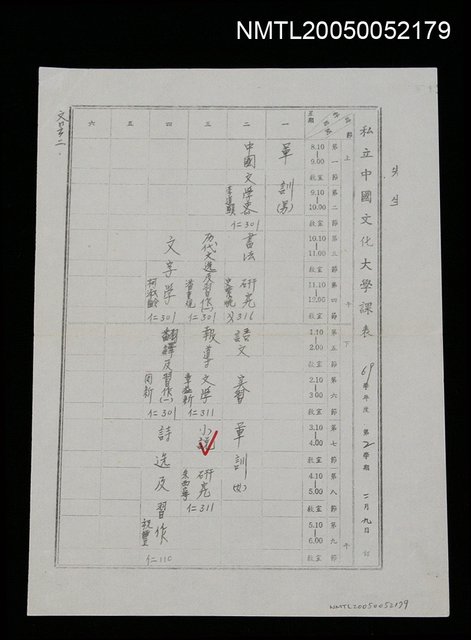 NMTL20050052179
私立中國文化大學課表
69學年度第2學期 二月九日訂
星期
節
上
午
下
午
第一節
8.10
9.00
教室
第二節
9.10
10.00
教室
第三節
10.10
11.00
教室
第四節
11.10
12.00
教室
第五節
1.10
2.00
教室
第六節
2.10
3.00
教室
第七節
3.10
4.00
教室
第八節
4.10
5.00
教室
第九節
5.10
6.00
教室
一
軍訓(男)
軍訓(女)
二
中國文學專
仁301
書法研究
316
語文實習
三
历代文选及習作(一)
仁301
報導文學
仁311
小說研究
朱西寧
仁311
四
文字學
仁301
翻譯及習作(一)
周新
仁301
詩选及習作
祝豐
仁110
五
六
NMTL20050052179